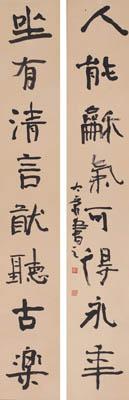 人能龢氣可得永年
坐有清言猷聽古樂